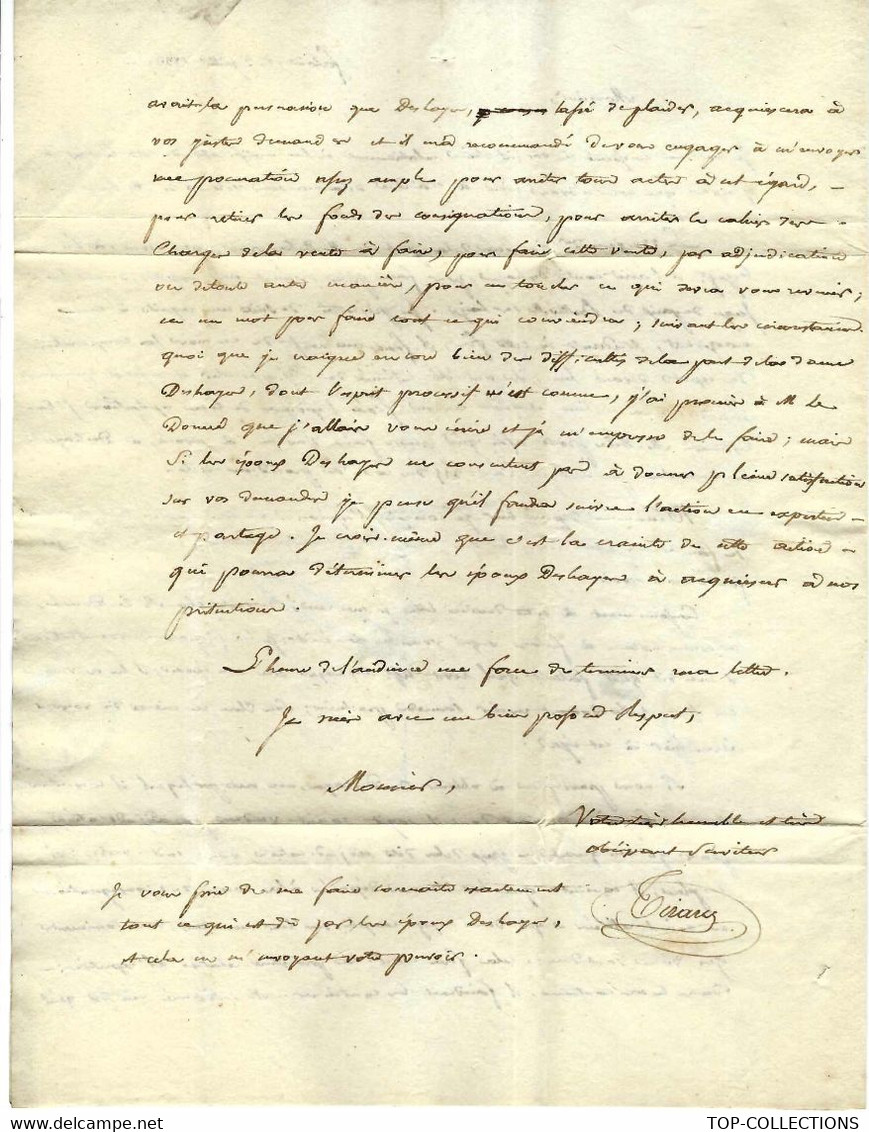 avoit la persuasion que Deshayes, lassé de plaider, acquiescera à
vos justes demandes et il m'a recommandé de vous engager à m'envoyer
une procuration assez ample pour arrêter tous actes à cet égard,
pour retirer les fonds des consignations, pour arrêter le cahier des
Charges de la vente à faire, pour faire cette vente, par adjudication
ou de toute autre manière, pour en toucher ce qui devra vous revenir;
en un mot pour faire tout ce qui conviendra; suivant les circonstances.
quoi que je craigne encore bien des difficultés de la part de la dame
Deshayes, dont l'esprit processif m'est connue, j'ai promis à M. le
que j'allais vous écrire et je m'empresse de le faire; mais
Si les époux Deshayes ne consentent pas à donner pleine satisfaction
sur vos demandes je pense qu'il faudra suivre l'action en expertise
et partage. Je crois même que c'est la crainte de cette action
qui pourra déterminer les époux Deshayes à acquiescer à nos
prétentions.
L'heure de l'audience me force de terminer ma lettre.
Je suis avec un bien profond Respect,
Monsieur,
Votre très humble et très
obéissant Serviteur
Je vous prie de me faire connaître exactement
tout ce qui est dû par les époux Deshayes,
et cela en m'envoyant votre pouvoir.
TOP-COLLECTIONS